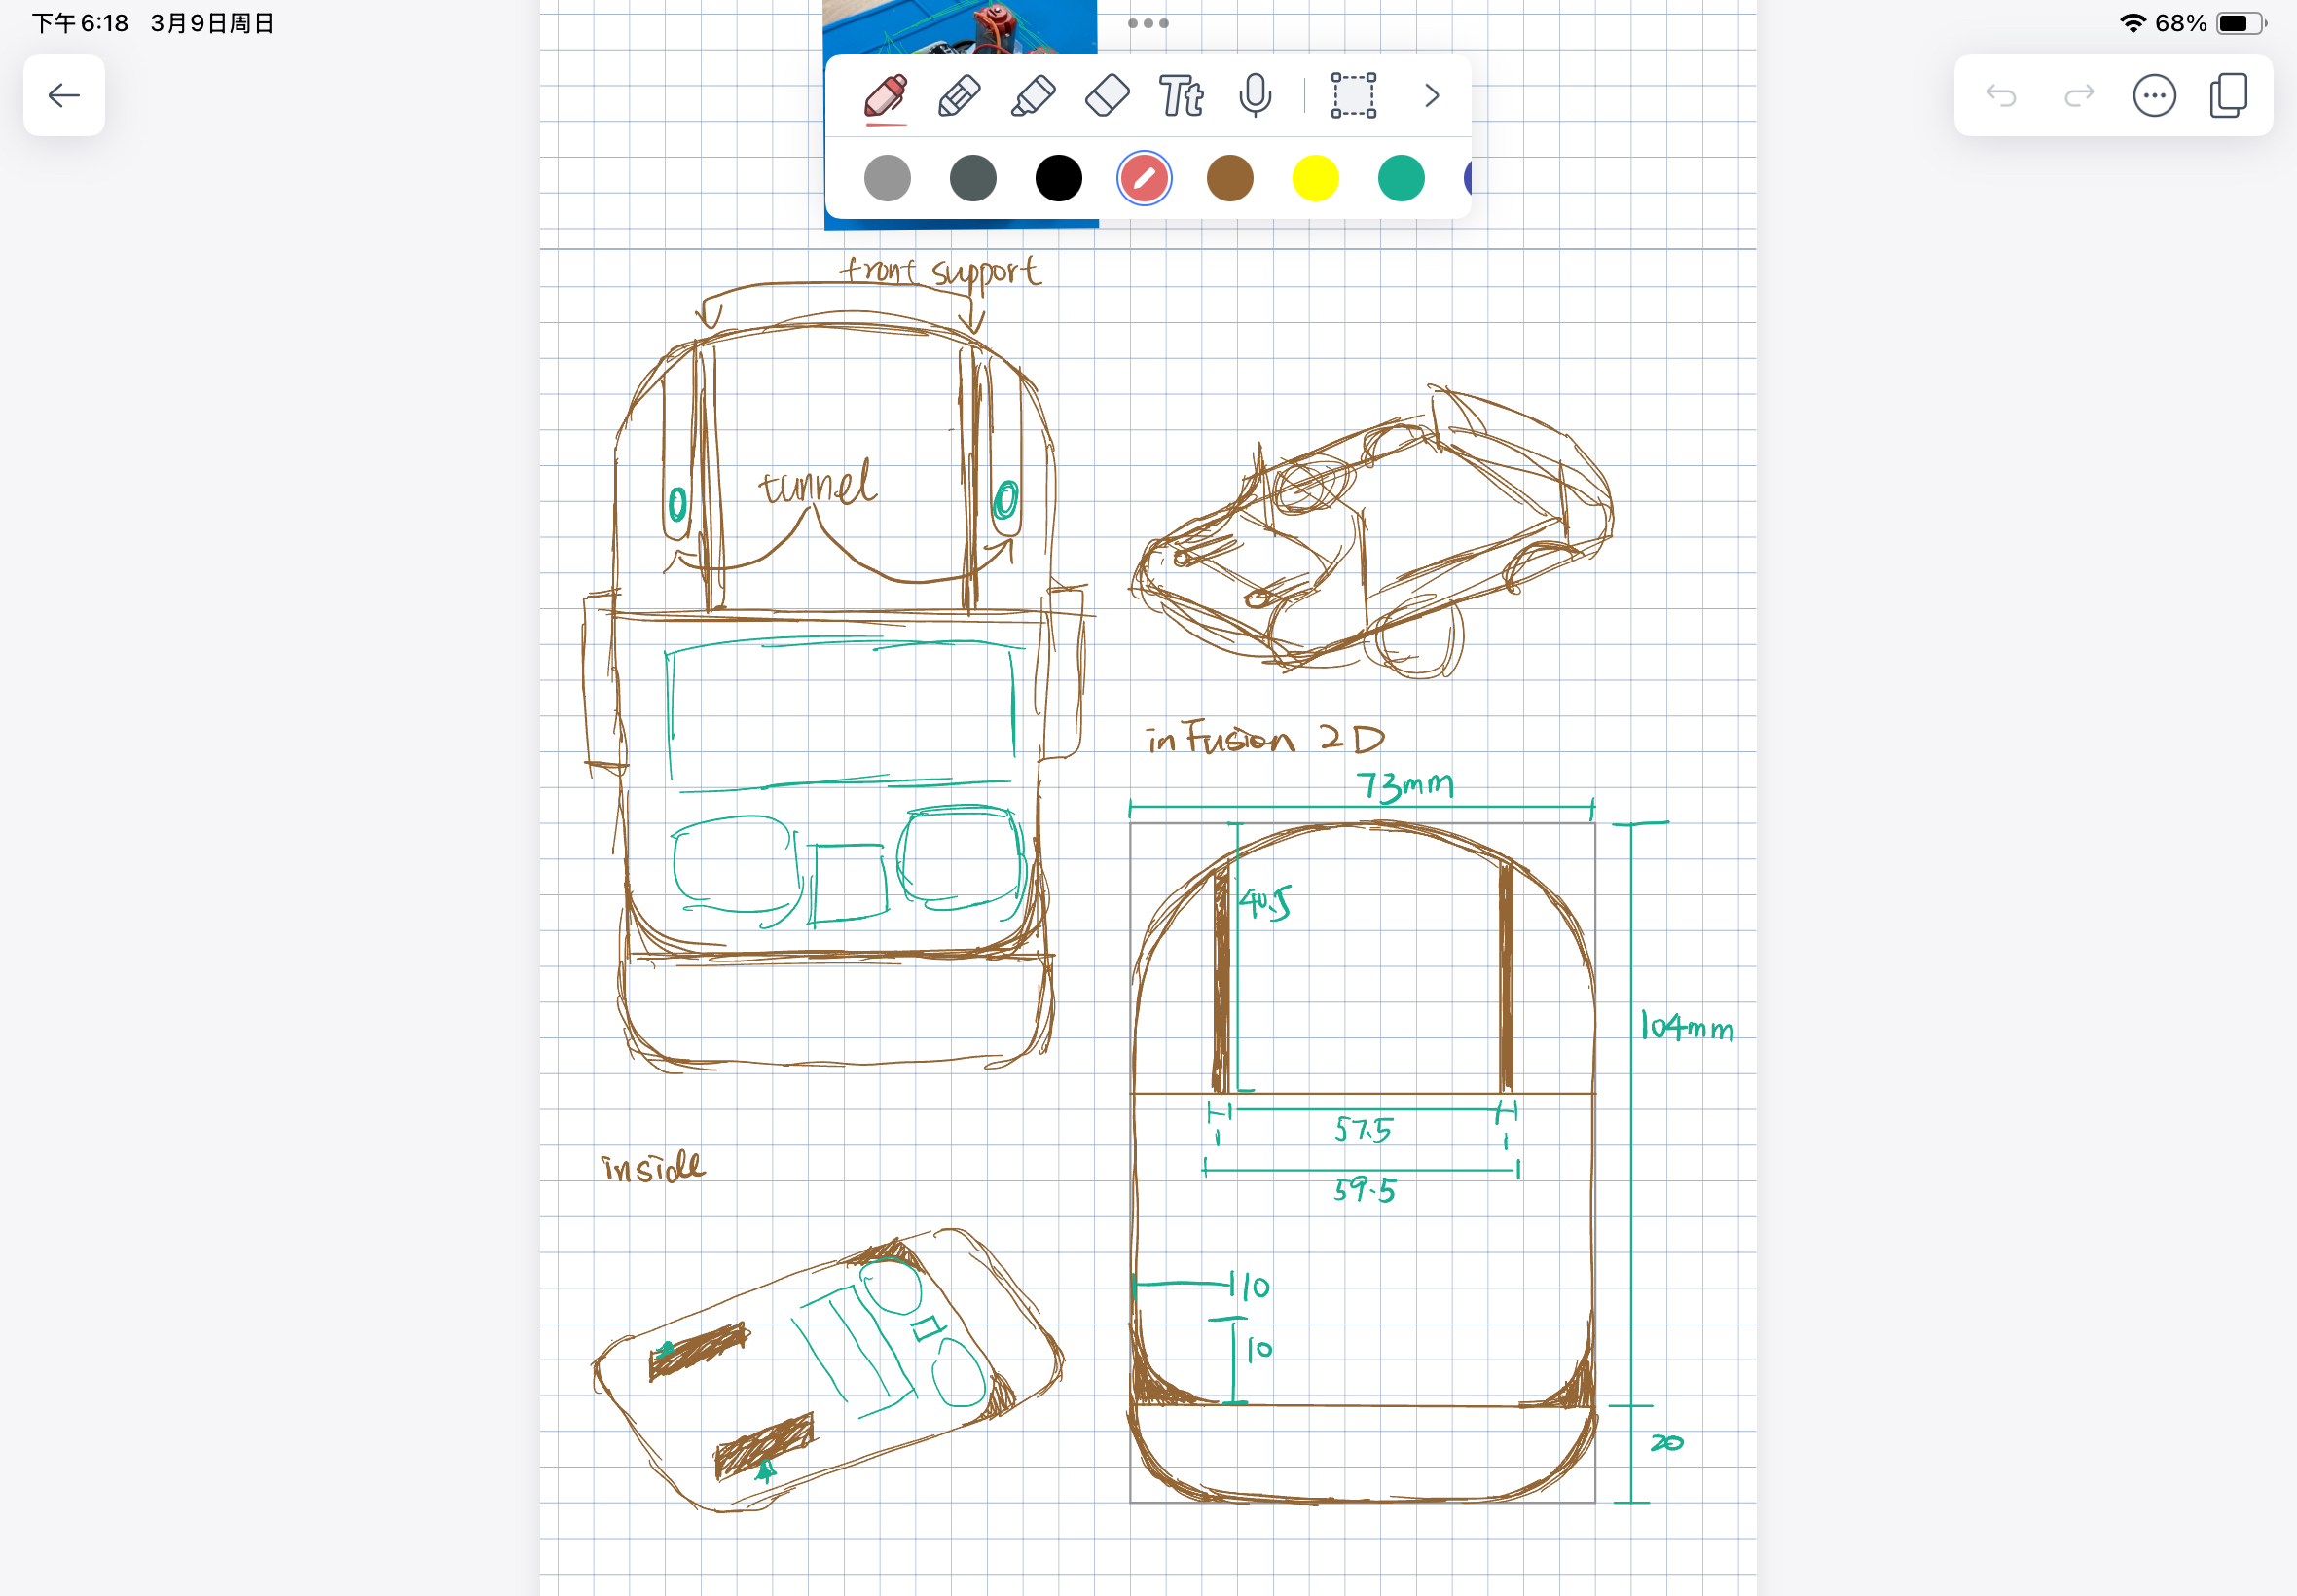 下午6:18 3月9日周日
68%
Tt
front support
tunnel
in Fusion 2D
73mm
40.5
104mm
57.5
1
1
59.5
inside
10
10
20